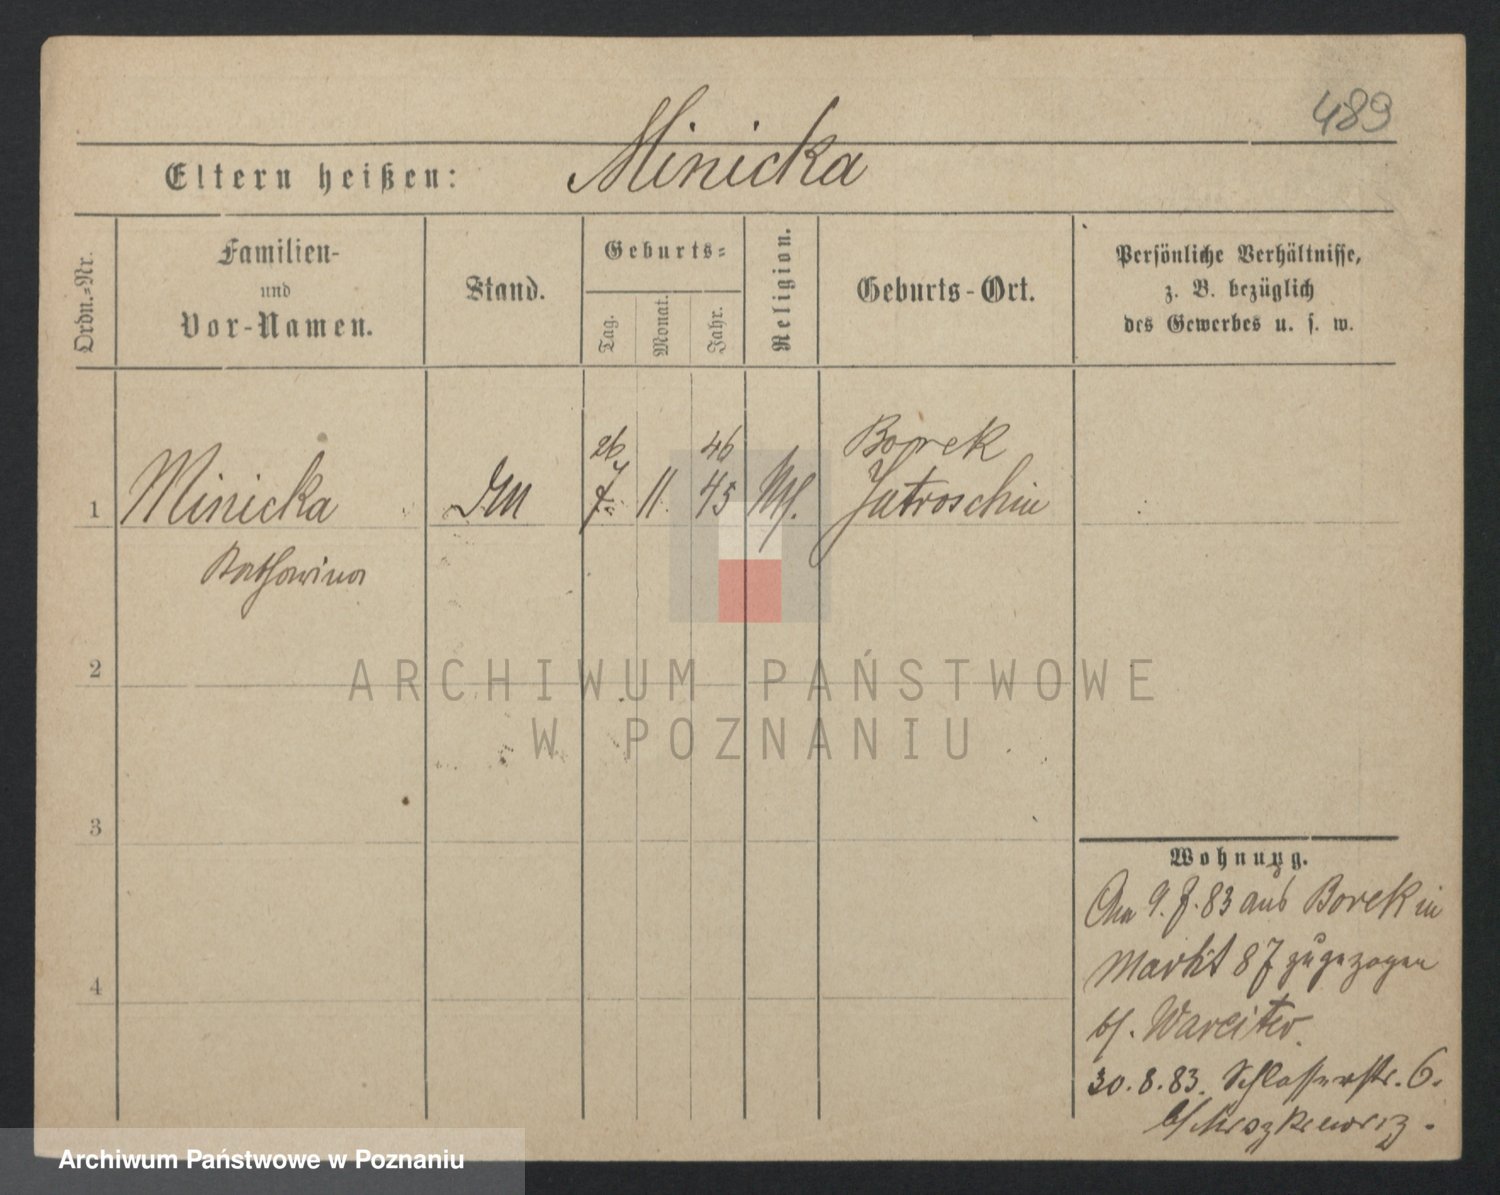 489
Minicka
Eltern heißen:
Ordn.=Nr.
Familien-
und
Vor-Namen.
Stand.
Geburts=
Tag.
Monat.
Jahr.
Religion.
Geburts-Ort.
Persönliche Verhältnisse,
z. B. bezüglich
des Gewerbes u. s. w.
26 46 Borek
1 Minicka 7 11. 45 Jutroschin
Katharina
2
3
4
Wohnung.
9. 7. 83 aus Borek in
Markt 87 zugezogen
30. 8. 83. Schlosserstr. 6.
ARCHIWUM PAŃSTWOWE
W POZNANIU
Archiwum Państwowe w Poznaniu